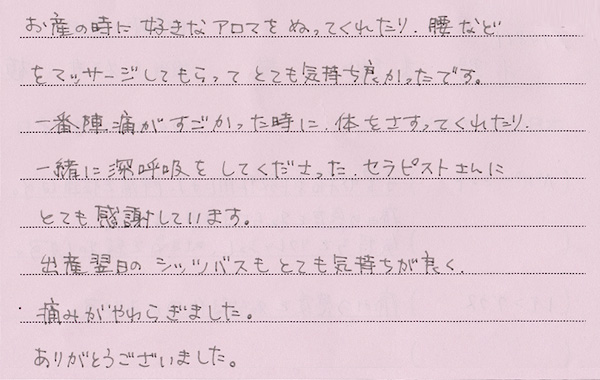 お産の時に好きなアロマをぬってくれたり、腰など
をマッサージしてもらってとても気持ち良かったです。
一番陣痛がすごかった時に、体をさすってくれたり、
一緒に深呼吸をしてくださった、セラピストさんに
とても感謝しています。
出産翌日のシッツバスもとても気持ちが良く、
痛みがやわらぎました。
ありがとうございました。